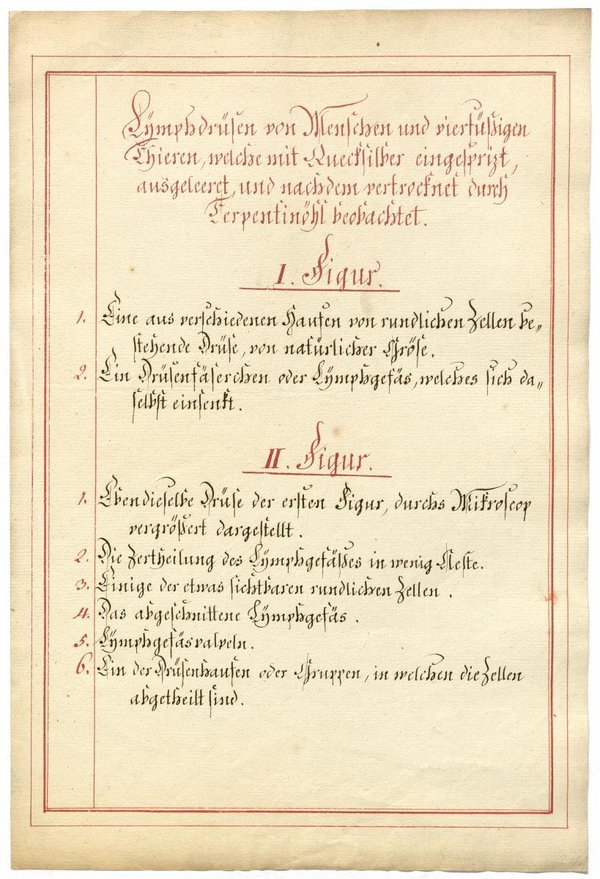 Lÿmphdrüsen von Menschen und vierfüßigen
Thieren, welche mit Quecksilber eingesprizt,
ausgeleeret, und nachdem vertrocknet durch
Terpentinöhl beobachtet.
I. Figur.
1. Eine aus verschiedenen Haufen von rundlichen Zellen be„
stehende Drüse, von natürlicher Gröse.
2. Ein Drüsenfäserchen oder Lÿmphgefäs, welches sich da„
selbst einsenkt.
II. Figur.
1. Ebendieselbe Drüse der ersten Figur, durchs Mikroscop
vergrößert dargestellt.
2. Die Zertheilung des Lÿmphgefäßes in wenig Aeste.
3. Einige der etwas sichtbaren rundlichen Zellen.
4. Das abgeschnittene Lÿmphgefäs.
5. Lÿmphgefäsvalveln.
6. Ein der Drüsenhaufen oder Gruppen, in welchen die Zellen
abgetheilt sind.